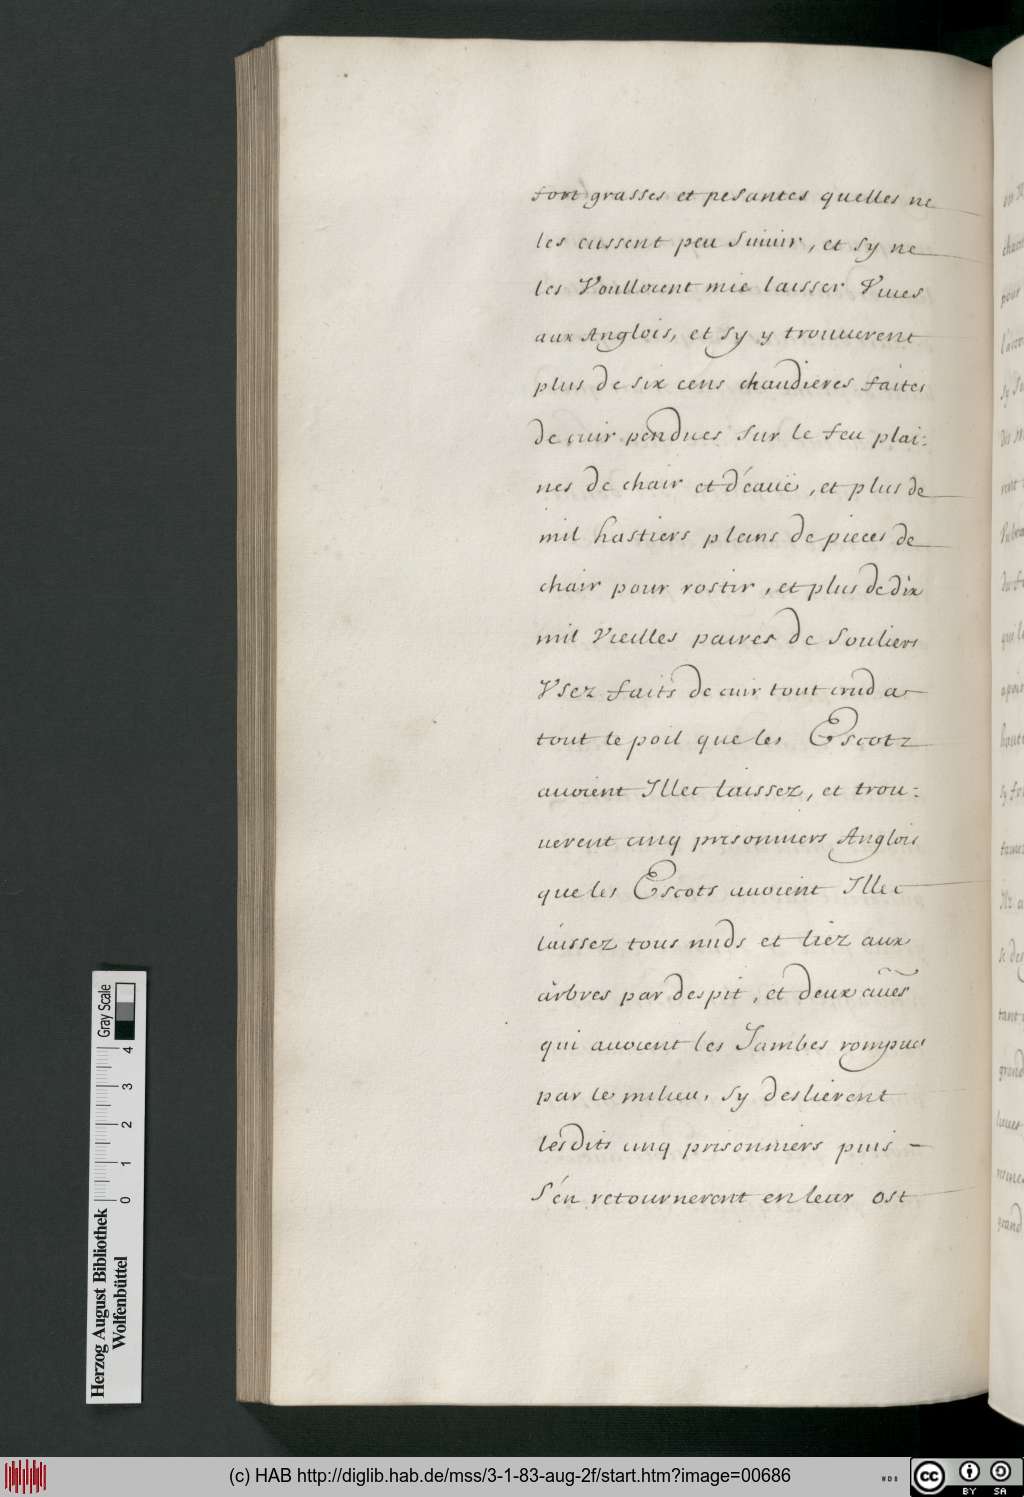 fort grasses et pesantes quelles ne
les eussent peu Suiuir, et sy ne
les Voulloient mie laisser Viues
aux Anglois, et sy y trouuerent
plus de six cens chaudieres faites
de cuir pendues sur le feu plai:
nes de chair et d'éauë, et plus de
mil hastiers pleins de pieces de
chair pour rostir, et plus de dix
mil Vieilles paires de Souliers
Vsez faits de cuir tout crud a
tout le poil que les Escotz
auoient Illec laissez, et trou:
uerent cinq prisonniers Anglois
que les Escots auoient Illec
laissez tous nuds et liez aux
arbres par despit, et deux aũes
qui auoient les Jambes rompues
par le milieu, sy deslierent
lesdits cinq prisonniers puis -
s'én retournerent en leur ost
Gray Scale
4
3
2
1
0
Herzog August Bibliothek
Wolfenbüttel
(c) HAB http://diglib.hab.de/mss/3-1-83-aug-2f/start.htm?image=00686
WDB
cc
BY SA